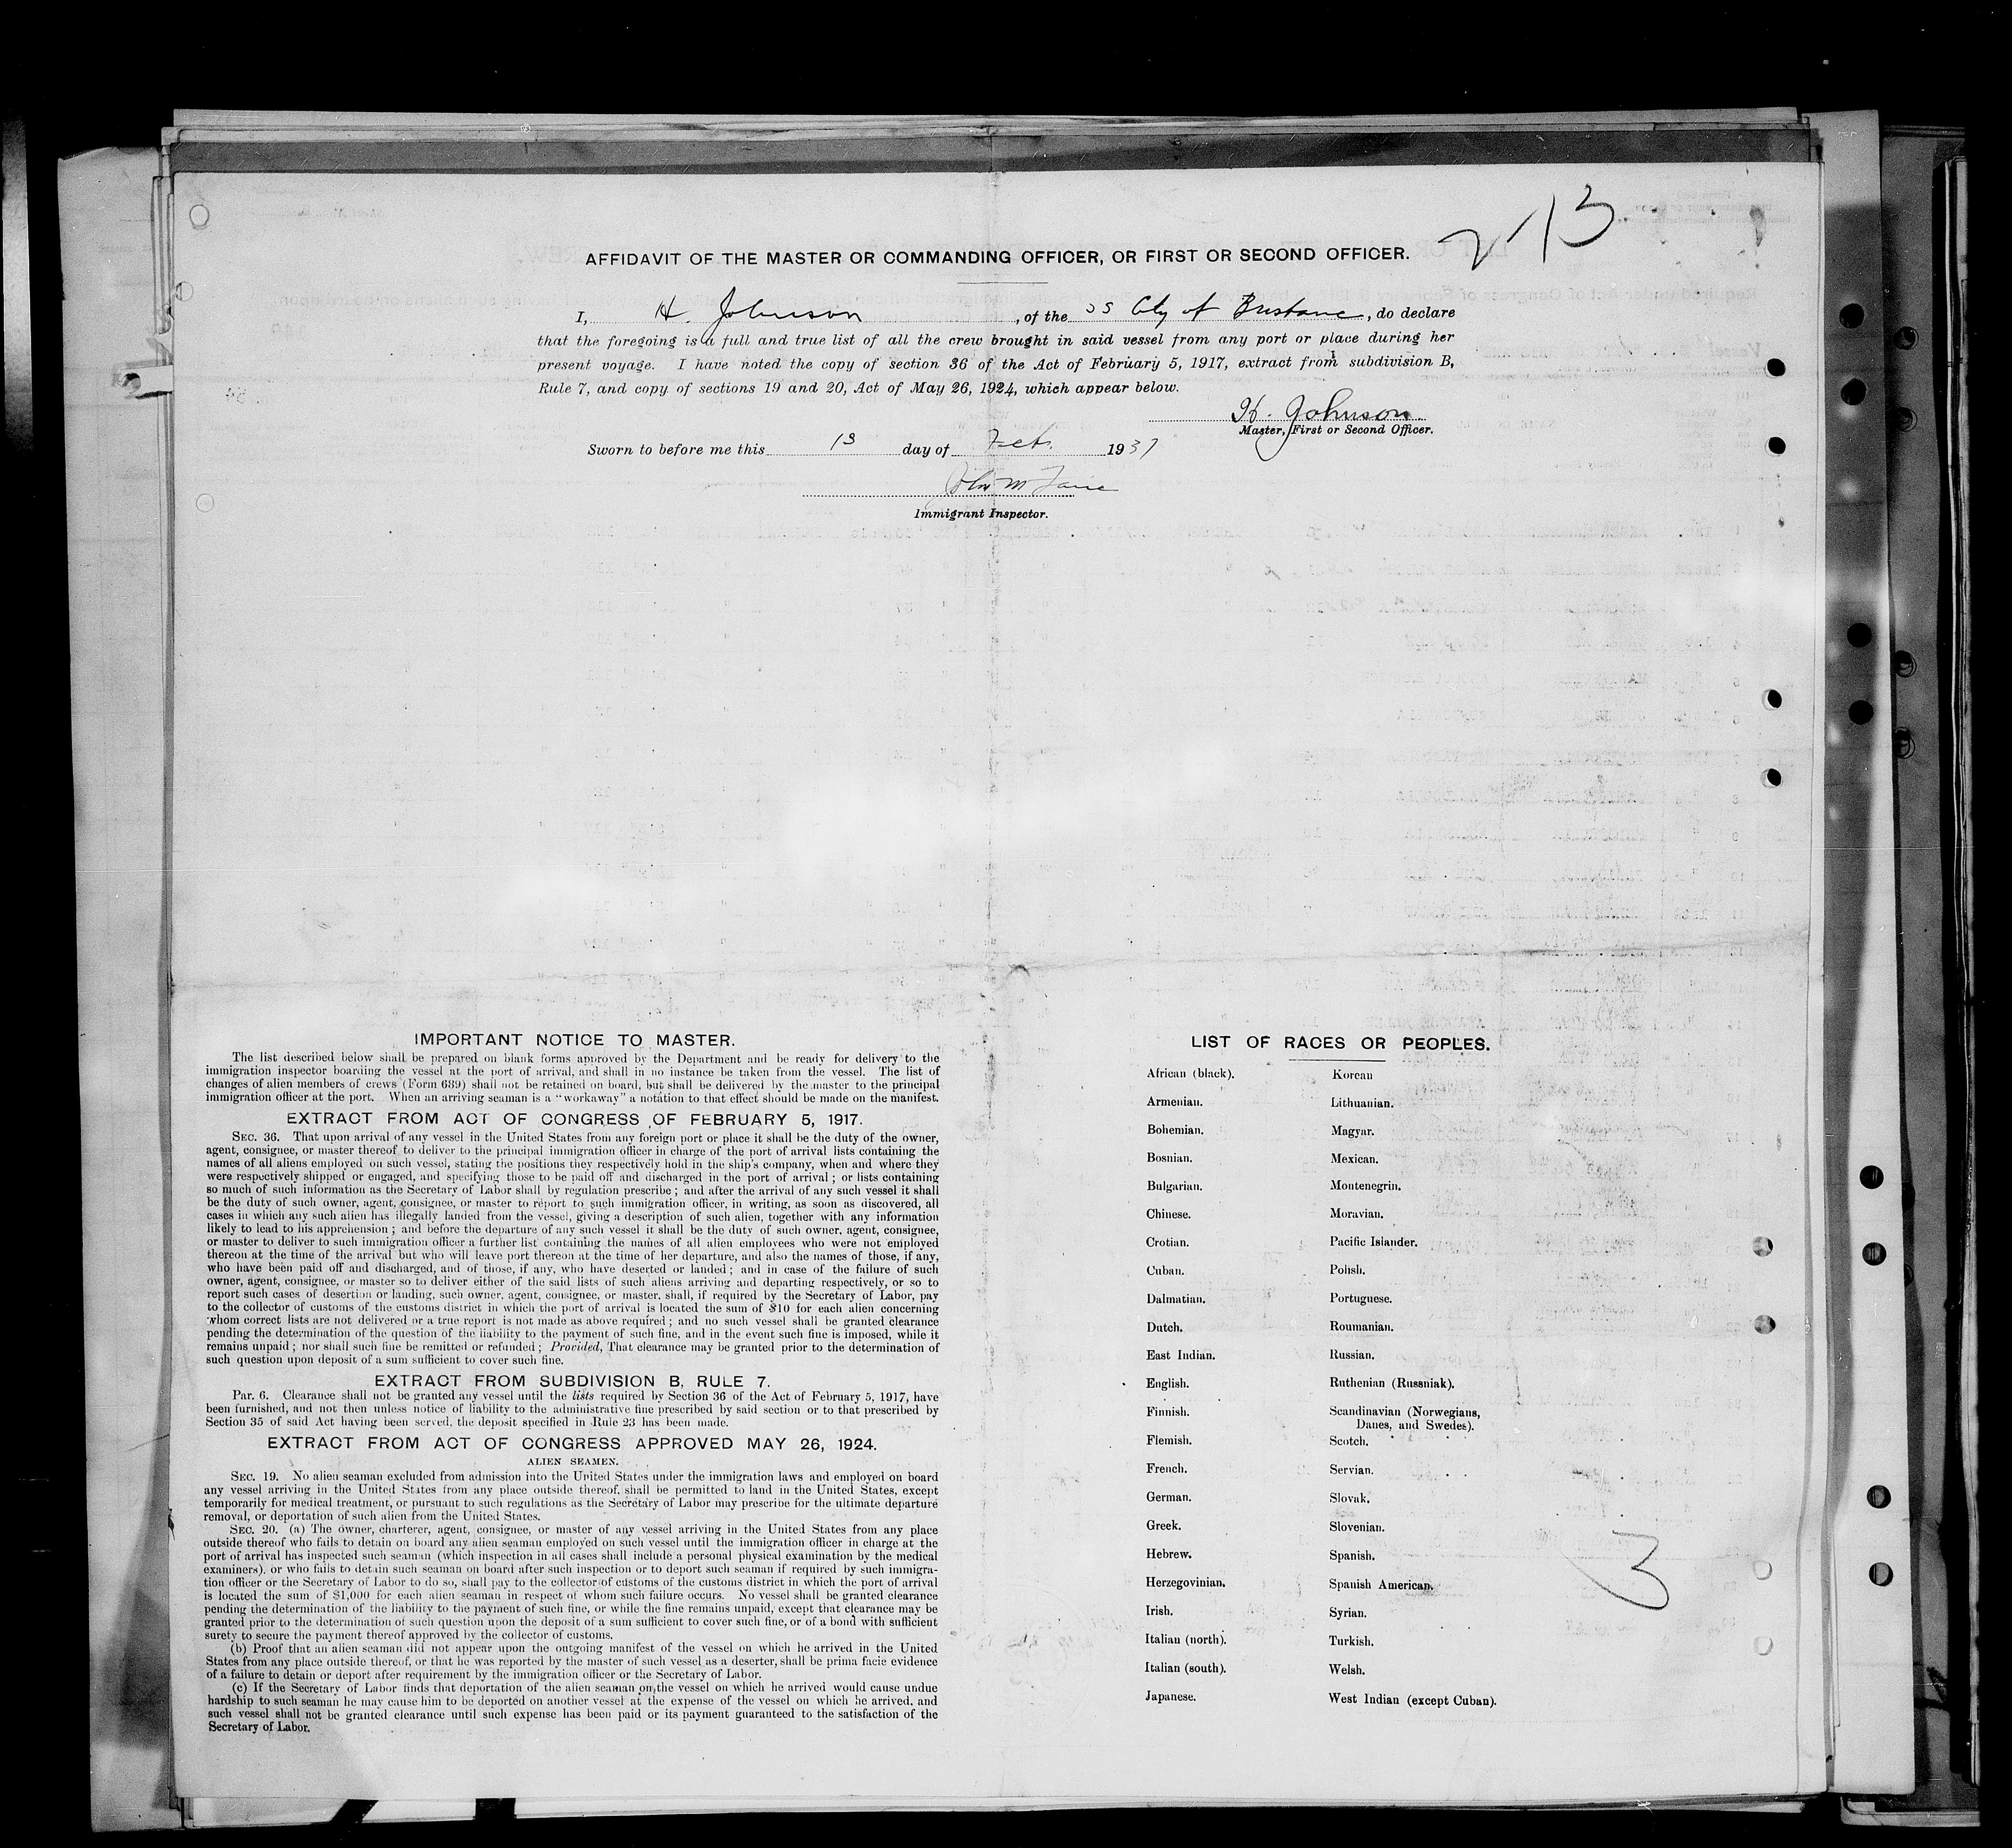 2/13
AFFIDAVIT OF THE MASTER OR COMMANDING OFFICER, OR FIRST OR SECOND OFFICER.
I, H. Johnson, of the SS City of Brisbane, do declare
that the foregoing is a full and true list of all the crew brought in said vessel from any port or place during her
present voyage. I have noted the copy of section 36 of the Act of February 5, 1917, extract from subdivision B,
Rule 7, and copy of sections 19 and 20, Act of May 26, 1924, which appear below.
H. Johnson
Master, First or Second Officer.
Sworn to before me this 13 day of Feb. 1937
John M
Immigrant Inspector.
IMPORTANT NOTICE TO MASTER.
The list described below shall be prepared on blank forms approved by the Department and be ready for delivery to the
immigration inspector boarding the vessel at the port of arrival, and shall in no instance be taken from the vessel. The list of
changes of alien members of crews (Form 689) shall not be retained on board, but shall be delivered by the master to the principal
immigration officer at the port. When an arriving seaman is a "workaway" a notation to that effect should be made on the manifest.
EXTRACT FROM ACT OF CONGRESS OF FEBRUARY 5, 1917.
SEC. 36. That upon arrival of any vessel in the United States from any foreign port or place it shall be the duty of the owner,
agent, consignee, or master thereof to deliver to the principal immigration officer in charge of the port of arrival lists containing the
names of all aliens employed on such vessel, stating the positions they respectively hold in the ship's company, when and where they
were respectively shipped or engaged, and specifying those to be paid off and discharged in the port of arrival; or lists containing
so much of such information as the Secretary of Labor shall by regulation prescribe; and after the arrival of any such vessel it shall
be the duty of such owner, agent, consignee, or master to report to such immigration officer, in writing, as soon as discovered, all
cases in which any such alien has illegally landed from the vessel, giving a description of such alien, together with any information
likely to lead to his apprehension; and before the departure of any such vessel it shall be the duty of such owner, agent, consignee,
or master to deliver to such immigration officer a further list containing the names of all alien employees who were not employed
thereon at the time of the arrival but who will leave port thereon at the time of her departure, and also the names of those, if any,
who have been paid off and discharged, and of those, if any, who have deserted or landed; and in case of the failure of such
owner, agent, consignee, or master so to deliver either of the said lists of such aliens arriving and departing respectively, or so to
report such cases of desertion or landing, such owner, agent, consignee, or master, shall, if required by the Secretary of Labor, pay
to the collector of customs of the customs district in which the port of arrival is located the sum of $10 for each alien concerning
whom correct lists are not delivered or a true report is not made as above required; and no such vessel shall be granted clearance
pending the determination of the question of the liability to the payment of such fine, and in the event such fine is imposed, while it
remains unpaid; nor shall such fine be remitted or refunded; Provided, That clearance may be granted prior to the determination of
such question upon deposit of a sum sufficient to cover such fine.
EXTRACT FROM SUBDIVISION B, RULE 7.
Par. 6. Clearance shall not be granted any vessel until the lists required by Section 36 of the Act of February 5, 1917, have
been furnished, and not then unless notice of liability to the administrative fine prescribed by said section or to that prescribed by
Section 35 of said Act having been served, the deposit specified in Rule 23 has been made.
EXTRACT FROM ACT OF CONGRESS APPROVED MAY 26, 1924.
ALIEN SEAMEN.
SEC. 19. No alien seaman excluded from admission into the United States under the immigration laws and employed on board
any vessel arriving in the United States from any place outside thereof, shall be permitted to land in the United States, except
temporarily for medical treatment, or pursuant to such regulations as the Secretary of Labor may prescribe for the ultimate departure
removal, or deportation of such alien from the United States.
SEC. 20. (a) The owner, charterer, agent, consignee, or master of any vessel arriving in the United States from any place
outside thereof who fails to detain on board any alien seaman employed on such vessel until the immigration officer in charge at the
port of arrival has inspected such seaman (which inspection in all cases shall include a personal physical examination by the medical
examiners), or who fails to detain such seaman on board after such inspection or to deport such seaman if required by such immigra-
tion officer or the Secretary of Labor to do so, shall pay to the collector of customs of the customs district in which the port of arrival
is located the sum of $1,000 for each alien seaman in respect of whom such failure occurs. No vessel shall be granted clearance
pending the determination of the liability to the payment of such fine, or while the fine remains unpaid, except that clearance may be
granted prior to the determination of such question upon the deposit of a sum sufficient to cover such fine, or of a bond with sufficient
surety to secure the payment thereof approved by the collector of customs.
(b) Proof that an alien seaman did not appear upon the outgoing manifest of the vessel on which he arrived in the United
States from any place outside thereof, or that he was reported by the master of such vessel as a deserter, shall be prima facie evidence
of a failure to detain or deport after requirement by the immigration officer or the Secretary of Labor.
(c) If the Secretary of Labor finds that deportation of the alien seaman on the vessel on which he arrived would cause undue
hardship to such seaman he may cause him to be deported on another vessel at the expense of the vessel on which he arrived, and
such vessel shall not be granted clearance until such expense has been paid or its payment guaranteed to the satisfaction of the
Secretary of Labor.
LIST OF RACES OR PEOPLES.
African (black). Korean
Armenian. Lithuanian.
Bohemian. Magyar.
Bosnian. Mexican.
Bulgarian. Montenegrin.
Chinese. Moravian.
Crotian. Pacific Islander.
Cuban. Polish.
Dalmatian. Portuguese.
Dutch. Roumanian.
East Indian. Russian.
English. Ruthenian (Russniak).
Finnish. Scandinavian (Norwegians,
Danes, and Swedes).
Flemish. Scotch.
French. Servian.
German. Slovak.
Greek. Slovenian.
Hebrew. Spanish.
Herzegovinian. Spanish American.
Irish. Syrian.
Italian (north). Turkish.
Italian (south). Welsh.
Japanese. West Indian (except Cuban).
3